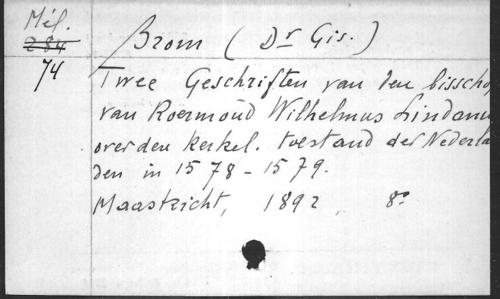 Mél.
284
74
Brom (Dr Gis.)
Twee Geschriften van den bisscho
van Roermond Wilhelmus Lindanu
over den kerkel. toestand der Nederla
den in 1578-1579.
Maastricht, 1892, 8°